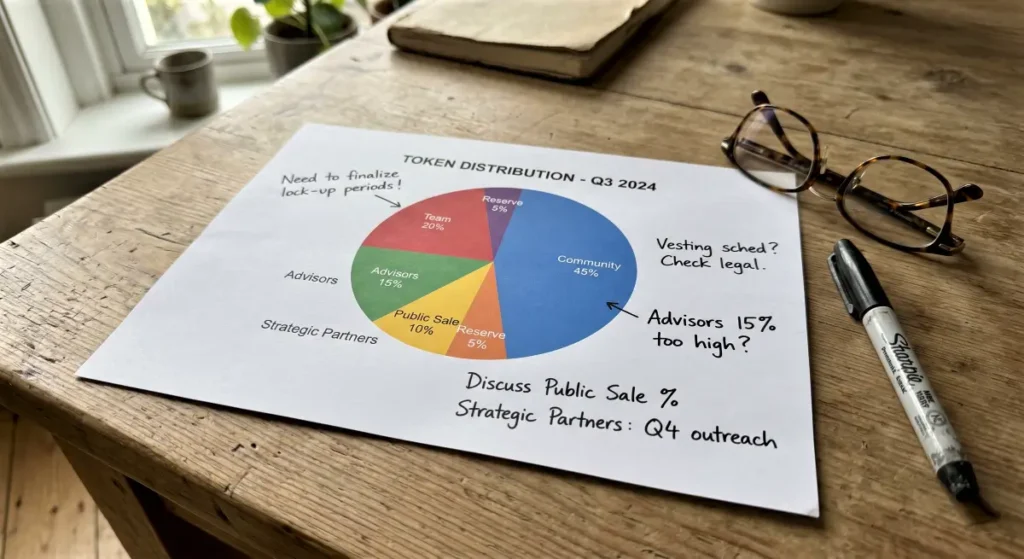 TOKEN DISTRIBUTION - Q3 2024
Need to finalize
lock-up periods!
Reserve
5%
Team
20%
Community
45%
Vesting sched?
Check legal.
Advisors
Advisors
15%
Public Sale
10%
Reserve
5%
Advisors 15%
too high?
Strategic Partners
Discuss Public Sale %
Strategic Partners: Q4 outreach
Sharpie